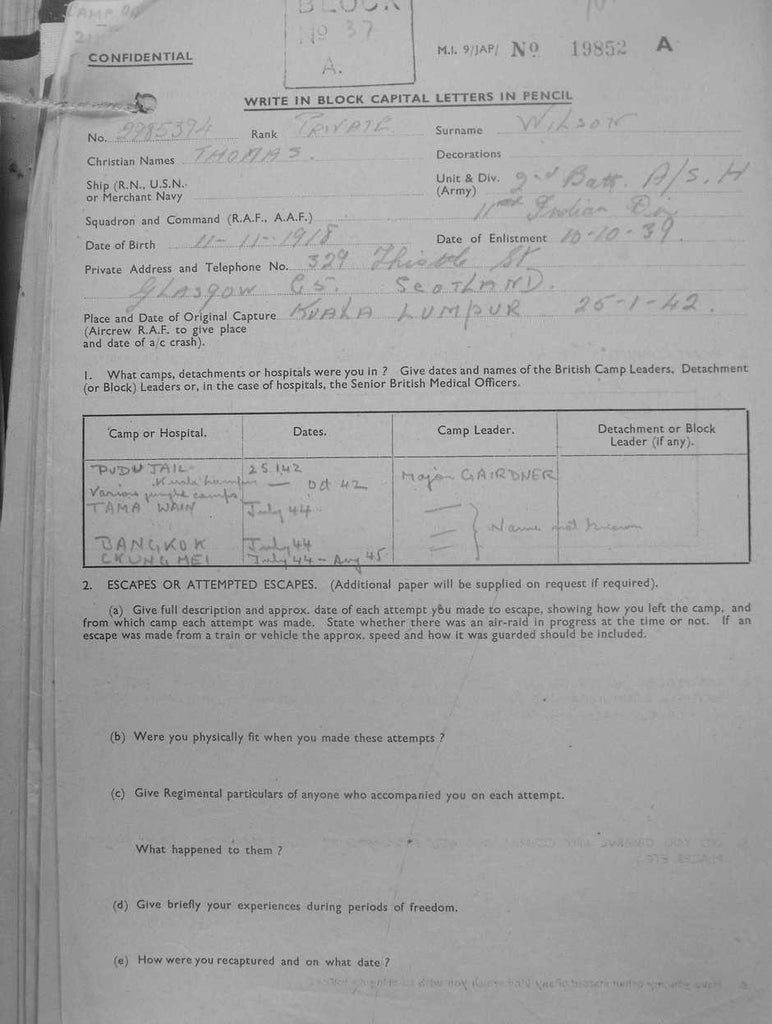 BLOCK
No 37
A.
CONFIDENTIAL
M.I. 9/JAP/ No 19852 A
WRITE IN BLOCK CAPITAL LETTERS IN PENCIL
No. 2985394 Rank PRIVATE Surname WILSON
Christian Names THOMAS. Decorations
Ship (R.N., U.S.N. or Merchant Navy
Unit & Div. (Army) 2nd Batt. A/S.H
11th Indian Div
Squadron and Command (R.A.F., A.A.F.)
Date of Birth 11-11-1918 Date of Enlistment 10-10-39.
Private Address and Telephone No. 329 Thistle St
GLASGOW C5. SCOTLAND.
Place and Date of Original Capture KUALA LUMPUR 25-1-42.
(Aircrew R.A.F. to give place
and date of a/c crash).
1. What camps, detachments or hospitals were you in ? Give dates and names of the British Camp Leaders, Detachment
(or Block) Leaders or, in the case of hospitals, the Senior British Medical Officers.
Camp or Hospital. Dates. Camp Leader. Detachment or Block
Leader (if any).
PUDU JAIL 25.1.42 Major GAIRDNER
Kuala Lumpur — Oct 42
Various jungle camps
TAMA WAIN July 44 —
— Name not known
BANGKOK July 44 —
CKUNG MEI July 44 - Aug 45
2. ESCAPES OR ATTEMPTED ESCAPES. (Additional paper will be supplied on request if required).
(a) Give full description and approx. date of each attempt you made to escape, showing how you left the camp, and
from which camp each attempt was made. State whether there was an air-raid in progress at the time or not. If an
escape was made from a train or vehicle the approx. speed and how it was guarded should be included.
(b) Were you physically fit when you made these attempts ?
(c) Give Regimental particulars of anyone who accompanied you on each attempt.
What happened to them ?
(d) Give briefly your experiences during periods of freedom.
(e) How were you recaptured and on what date ?